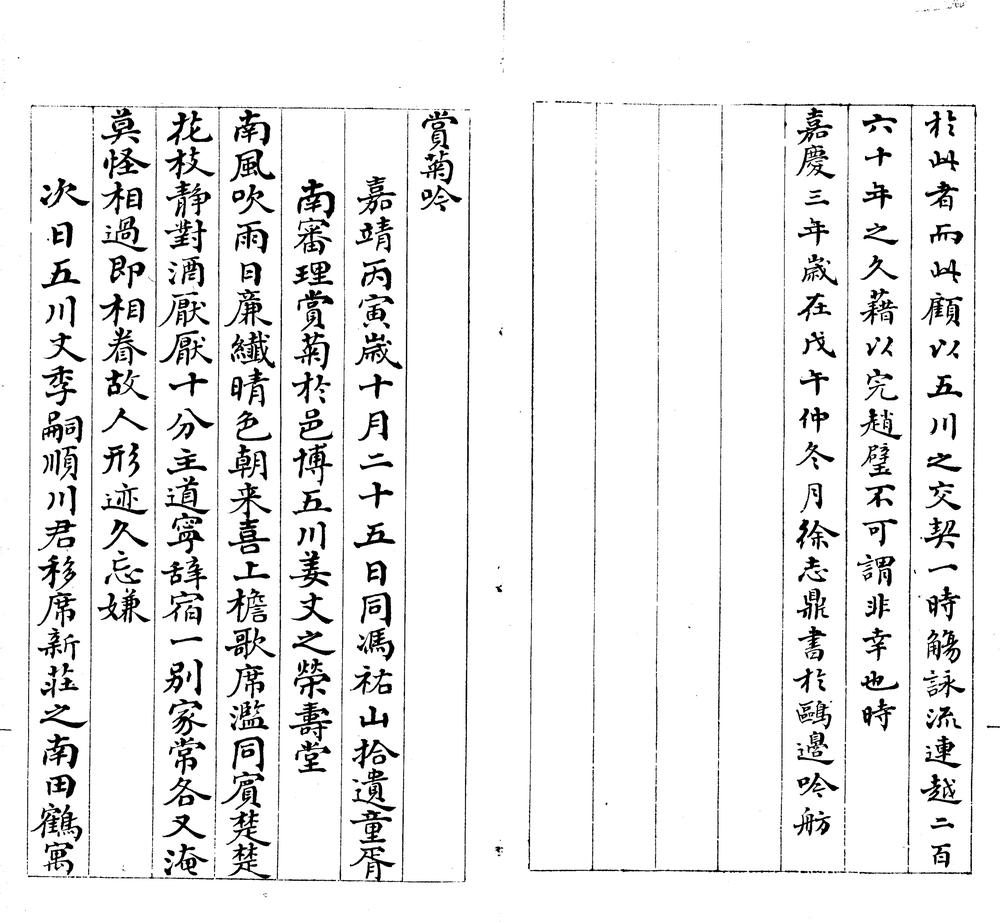 於此者而此顧以五川之交契一時觴詠流連越二百
六十年之久藉以完趙璧不可謂非幸也時
嘉慶三年歲在戊午仲冬月徐志鼎書於鷗邊吟舫
賞菊吟
嘉靖丙寅歲十月二十五日同馮祐山拾遺童胥
南審理賞菊於邑博五川姜丈之榮壽堂
南風吹雨日廉纖晴色朝来喜上檐歌席濫同賓楚楚
花枝静對酒厭厭十分主道寧辞宿一別家常各又淹
莫怪相過即相眷故人形迹久忘嫌
次日五川丈季嗣順川君移席新莊之南田鶴寓